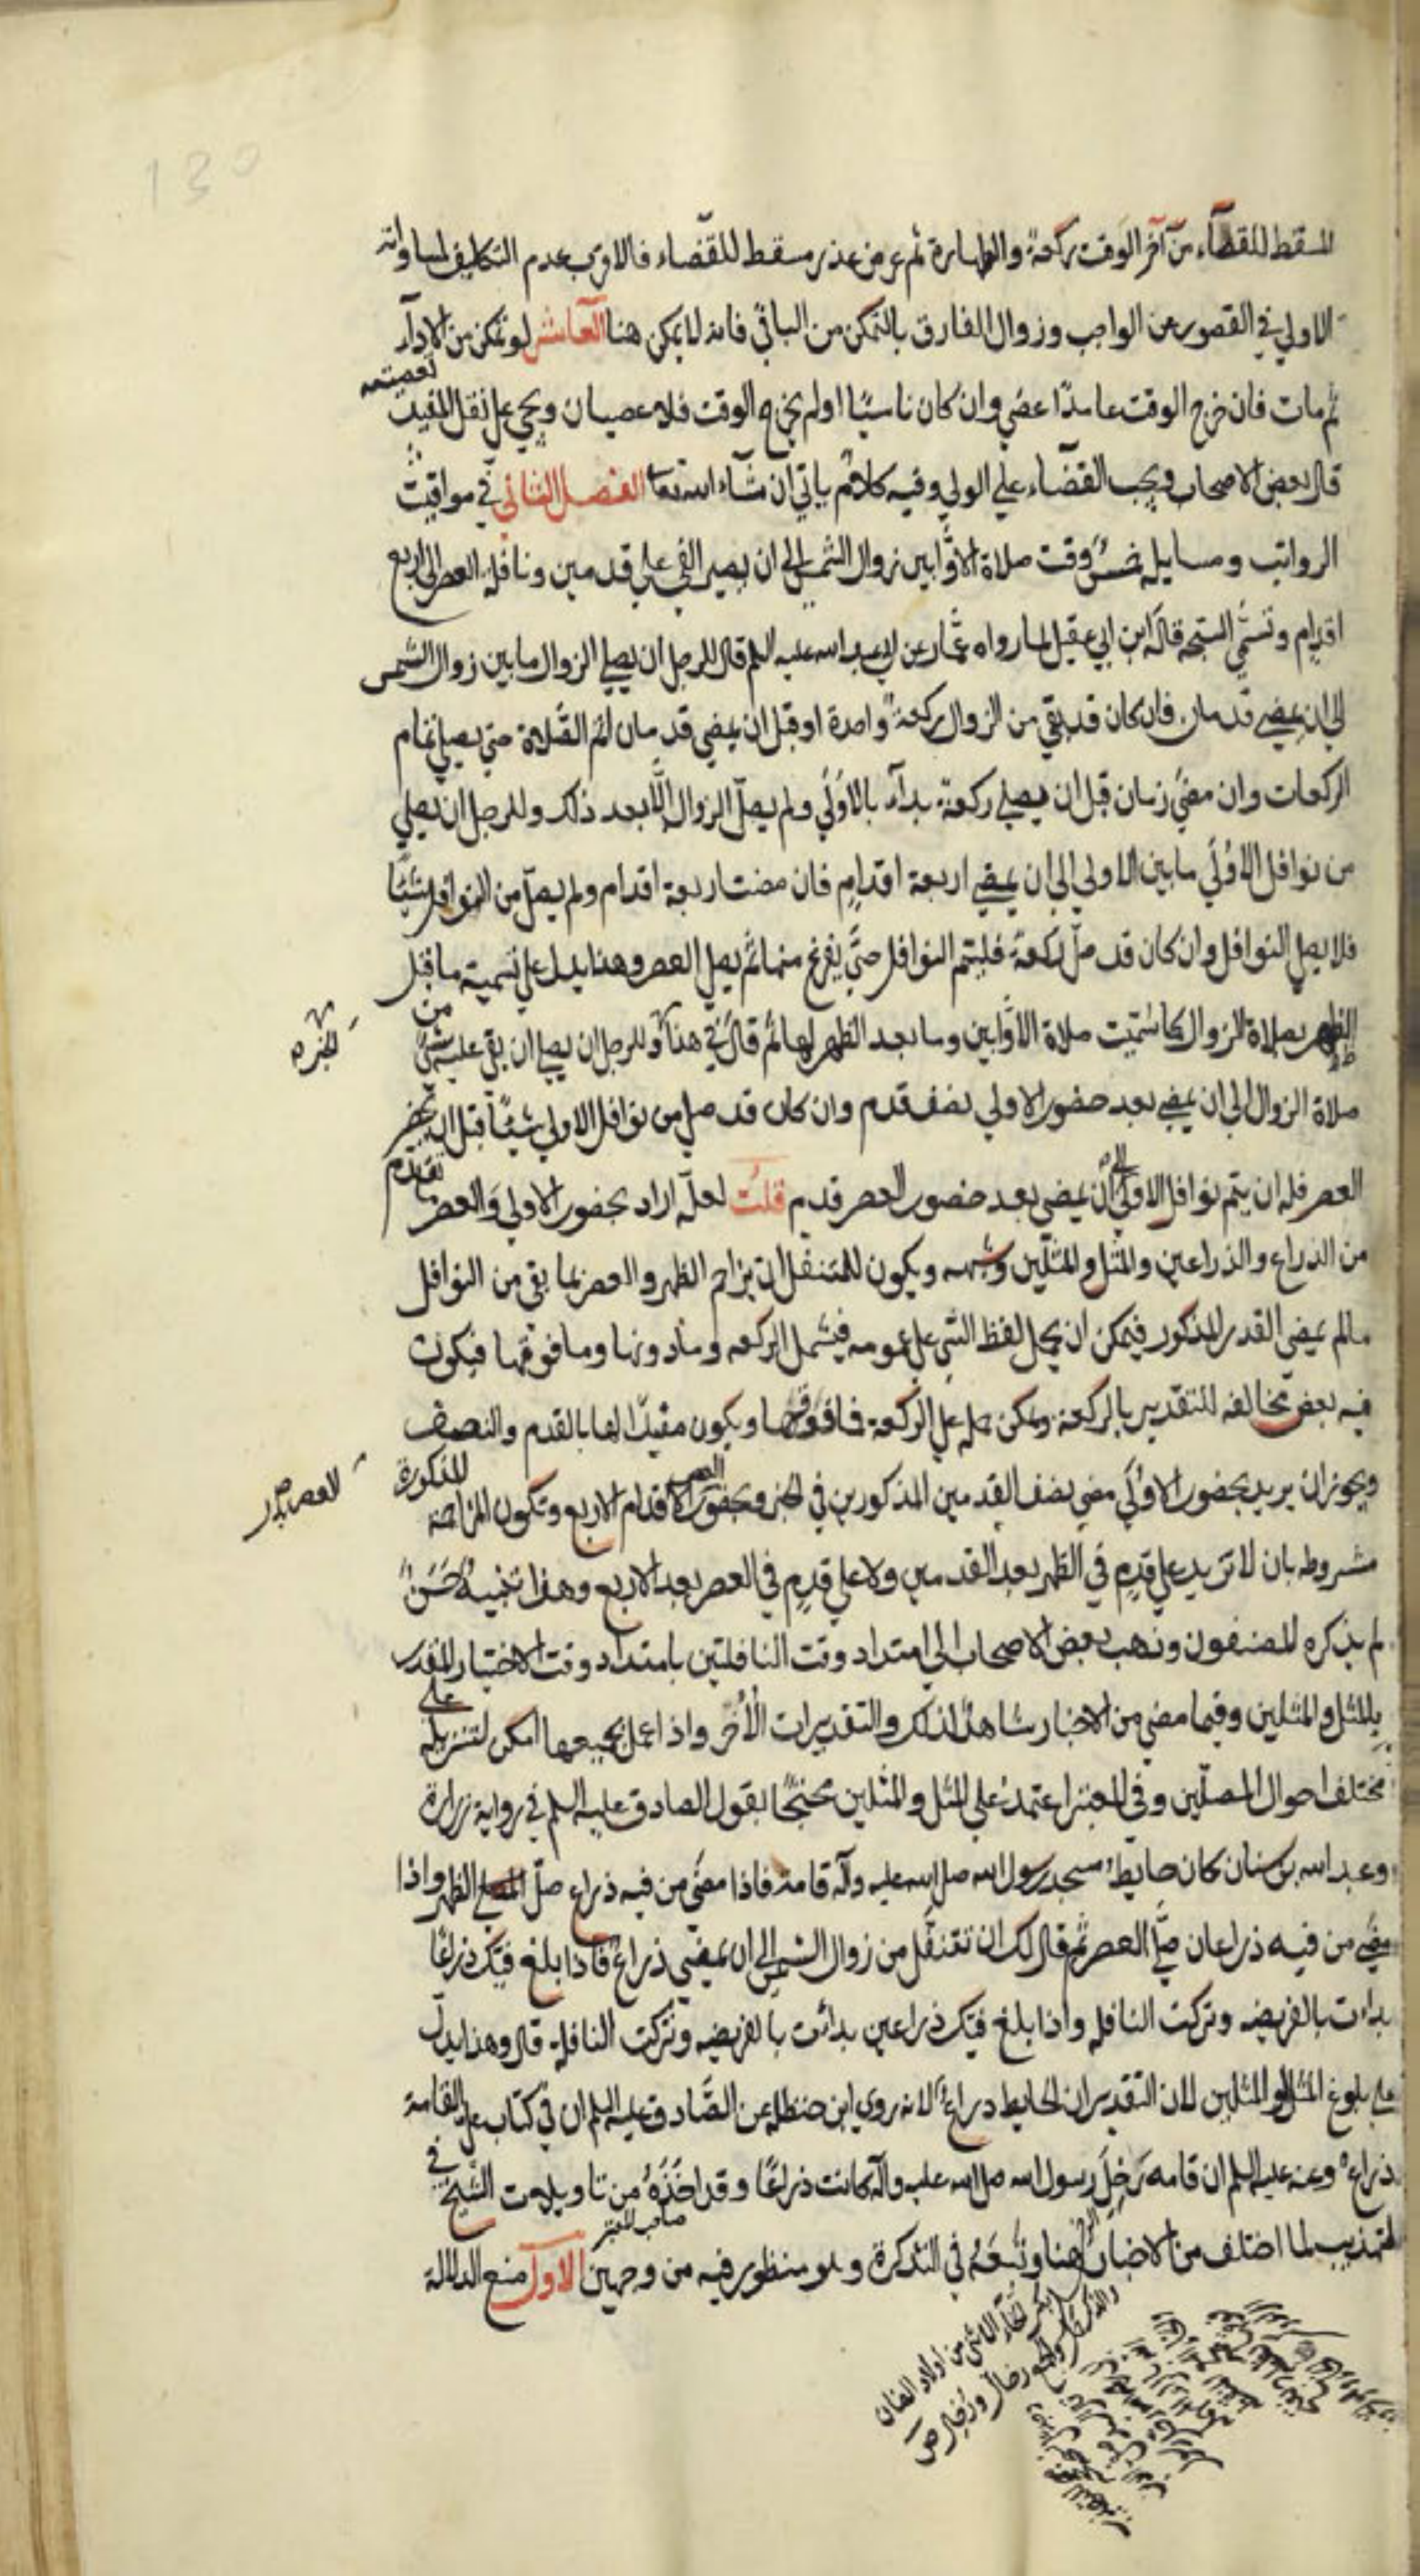 المسقط للقضاء من آخر الوقت ركعة والطهارة ثم عرض عذر مسقط للقضاء فالاقرب عدم التكليف لمساواته
الاولي في القصور عن الواجب وزوال الفارق بالتمكن من الباقي فانه لا يمكن هنا العاشر لو تمكن من الاداء
ثم مات فان خرج الوقت عامدا عصي وان كان ناسيا او لم يخرج الوقت فلا عصيان ويجي علي نقل المفيد تعصيته
قال بعض الاصحاب ويجب القضاء علي الولي وفيه كلام ياتي ان شاء الله تعا الفصل الثاني في مواقيت
الرواتب ومسايله خمس وقت صلاة الاوابين زوال الشمس الي ان يصير الفي علي قدمين ونافلة العصر الي اربع
اقدام وتسمي السبحة قاله ابن ابي عقيل لما رواه عمار عن ابي عبد الله عليه السلم قال للرجل ان يصلي الزوال ما بين زوال الشمس
الي ان يمضي قدمان فان كان قد بقي من الزوال ركعة واحدة او قبل ان يمضي قدمان اتم الصلاة حتي يصلي تمام
الركعات وان مضي زمان قبل ان يصلي ركعة بداء بالاولي ولم يصل الزوال الا بعد ذلك وللرجل ان يصلي
من نوافل الاولي ما بين الاولي الي ان يمضي اربعة اقدام فان مضت اربعة اقدام ولم يصل من النوافل شيئا
فلا يصلي النوافل وان كان قد صلي ركعة فليتم النوافل حتي يفرغ منها ثم يصلي العصر وهذا يدل علي تسمية ما قبل
الظهر بصلاة الزوال كما سميت صلاة الاوابين وما بعد الظهر لها ثم قال في هذا وللرجل ان يصلي ان بقي عليه شي من
الخبر
صلاة الزوال الي ان يمضي بعد حضور الاولي نصف قدم وان كان قد صلي من نوافل الاولي شيئا قبل ان يحضر
العصر فله ان يتم نوافل الاولي الي ان يمضي بعد حضور العصر قدم قلت لعله اراد بحضور الاولي والعصر ما تقدم
من الذراع والذراعين والمثل والمثلين وشبهه ويكون للمتنفل ان يزاحم الظهر والعصر بما بقي من النوافل
ما لم يمضي القدر المذكور فيمكن ان يحمل لفظ الشي علي عمومه فيشمل الركعه وما دونها وما فوقها فيكون
فيه بعض مخالفه للتقدير بالركعة ويمكن حمله علي الركعة فما فوقها ويكون مقيدا لها بالقدم والنصف
ويجوز ان يريد بحضور الاولي مضي نصف القدمين المذكورين في الخبر وبحضور العصر الاقدام الاربع وتكون المزاحمة المذكورة
مشروطه بان لا تزيد علي قدم في الظهر بعد القدمين ولا علي قدم في العصر بعد الاربع وهذا تنبيه حسن
لم يذكره المصنفون وذهب بعض الاصحاب الي امتداد وقت النافلتين بامتداد وقت الاختيار المقدر
بالمثل والمثلين وفيما مضي من الاخبار شاهد لذلك والتقديرات الاخر واذا عمل بجميعها امكن لتنزيله علي
مختلف احوال المصلين وفي المعتبر اعتمد علي المثل والمثلين محتجا بقول الصادق عليه السلم في رواية زرارة
وعبد الله بن سنان كان حايط مسجد رسول الله صلي الله عليه وآله قامة فاذا مضي من فيه ذراع صلي الظهر واذا
مضي من فيه ذراعان صلي العصر ثم قال لك ان تتنفل من زوال الشمس الي ان يمضي ذراع فاذا بلغ فيك ذراعا
بداءت بالفريضه وتركت النافلة واذا بلغ فيك ذراعين بدائت بالفريضه وتركت النافلة قال وهذا يدل
علي بلوغ المثل والمثلين لان التقدير ان الحايط ذراع لانه روي ابن حنظلة عن الصادق عليه السلم ان في كتاب علي القامة
ذراع وعنه عليه السلم ان قامه رحل رسول الله صلي الله عليه وآله كانت ذراعا وقد اخذه من تاويلات الشيخ في
التهذيب لما اختلف من الاخبار هنا وتبعه في التذكرة وهو منظور فيه من وجهين الاول منع الدلالة
صاحب المعتبر